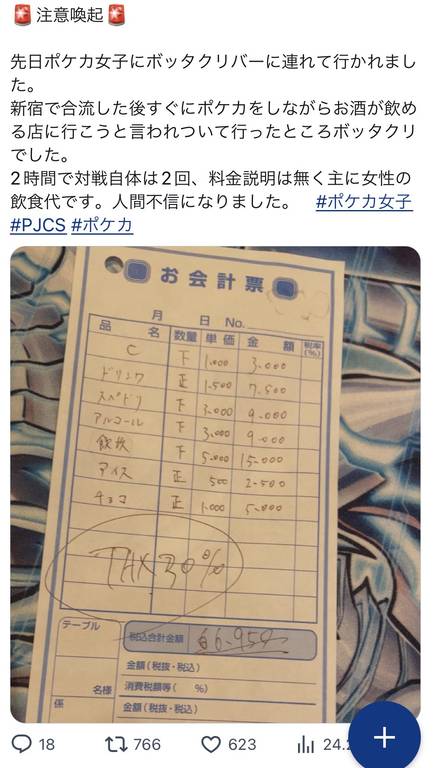 🚨注意喚起🚨
先日ポケカ女子にボッタクリバーに連れて行かれまし
た。
新宿で合流した後すぐにポケカをしながらお酒が飲め
る店に行こうと言われついて行ったところボッタクリ
でした。
2時間で対戦自体は2回、料金説明は無く主に女性の
飲食代です。人間不信になりました。 #ポケカ女子
#PJCS #ポケカ
お会計票
月 日 No.
品 名 数量 単価 金 額 税率(%)
C 下 1.000 3.000
ドリンク 正 1.500 7.500
スペドリ 下 3.000 9.000
アルコール 下 3.000 9.000
飲放 下 5.000 15.000
アイス 正 500 2.500
チョコ 正 1.000 5.000
TAX 30%
テーブル
税込合計金額 66.950
金額(税抜・税込)
名様 消費税額等( %)
係 金額(税抜・税込)
18 766 623